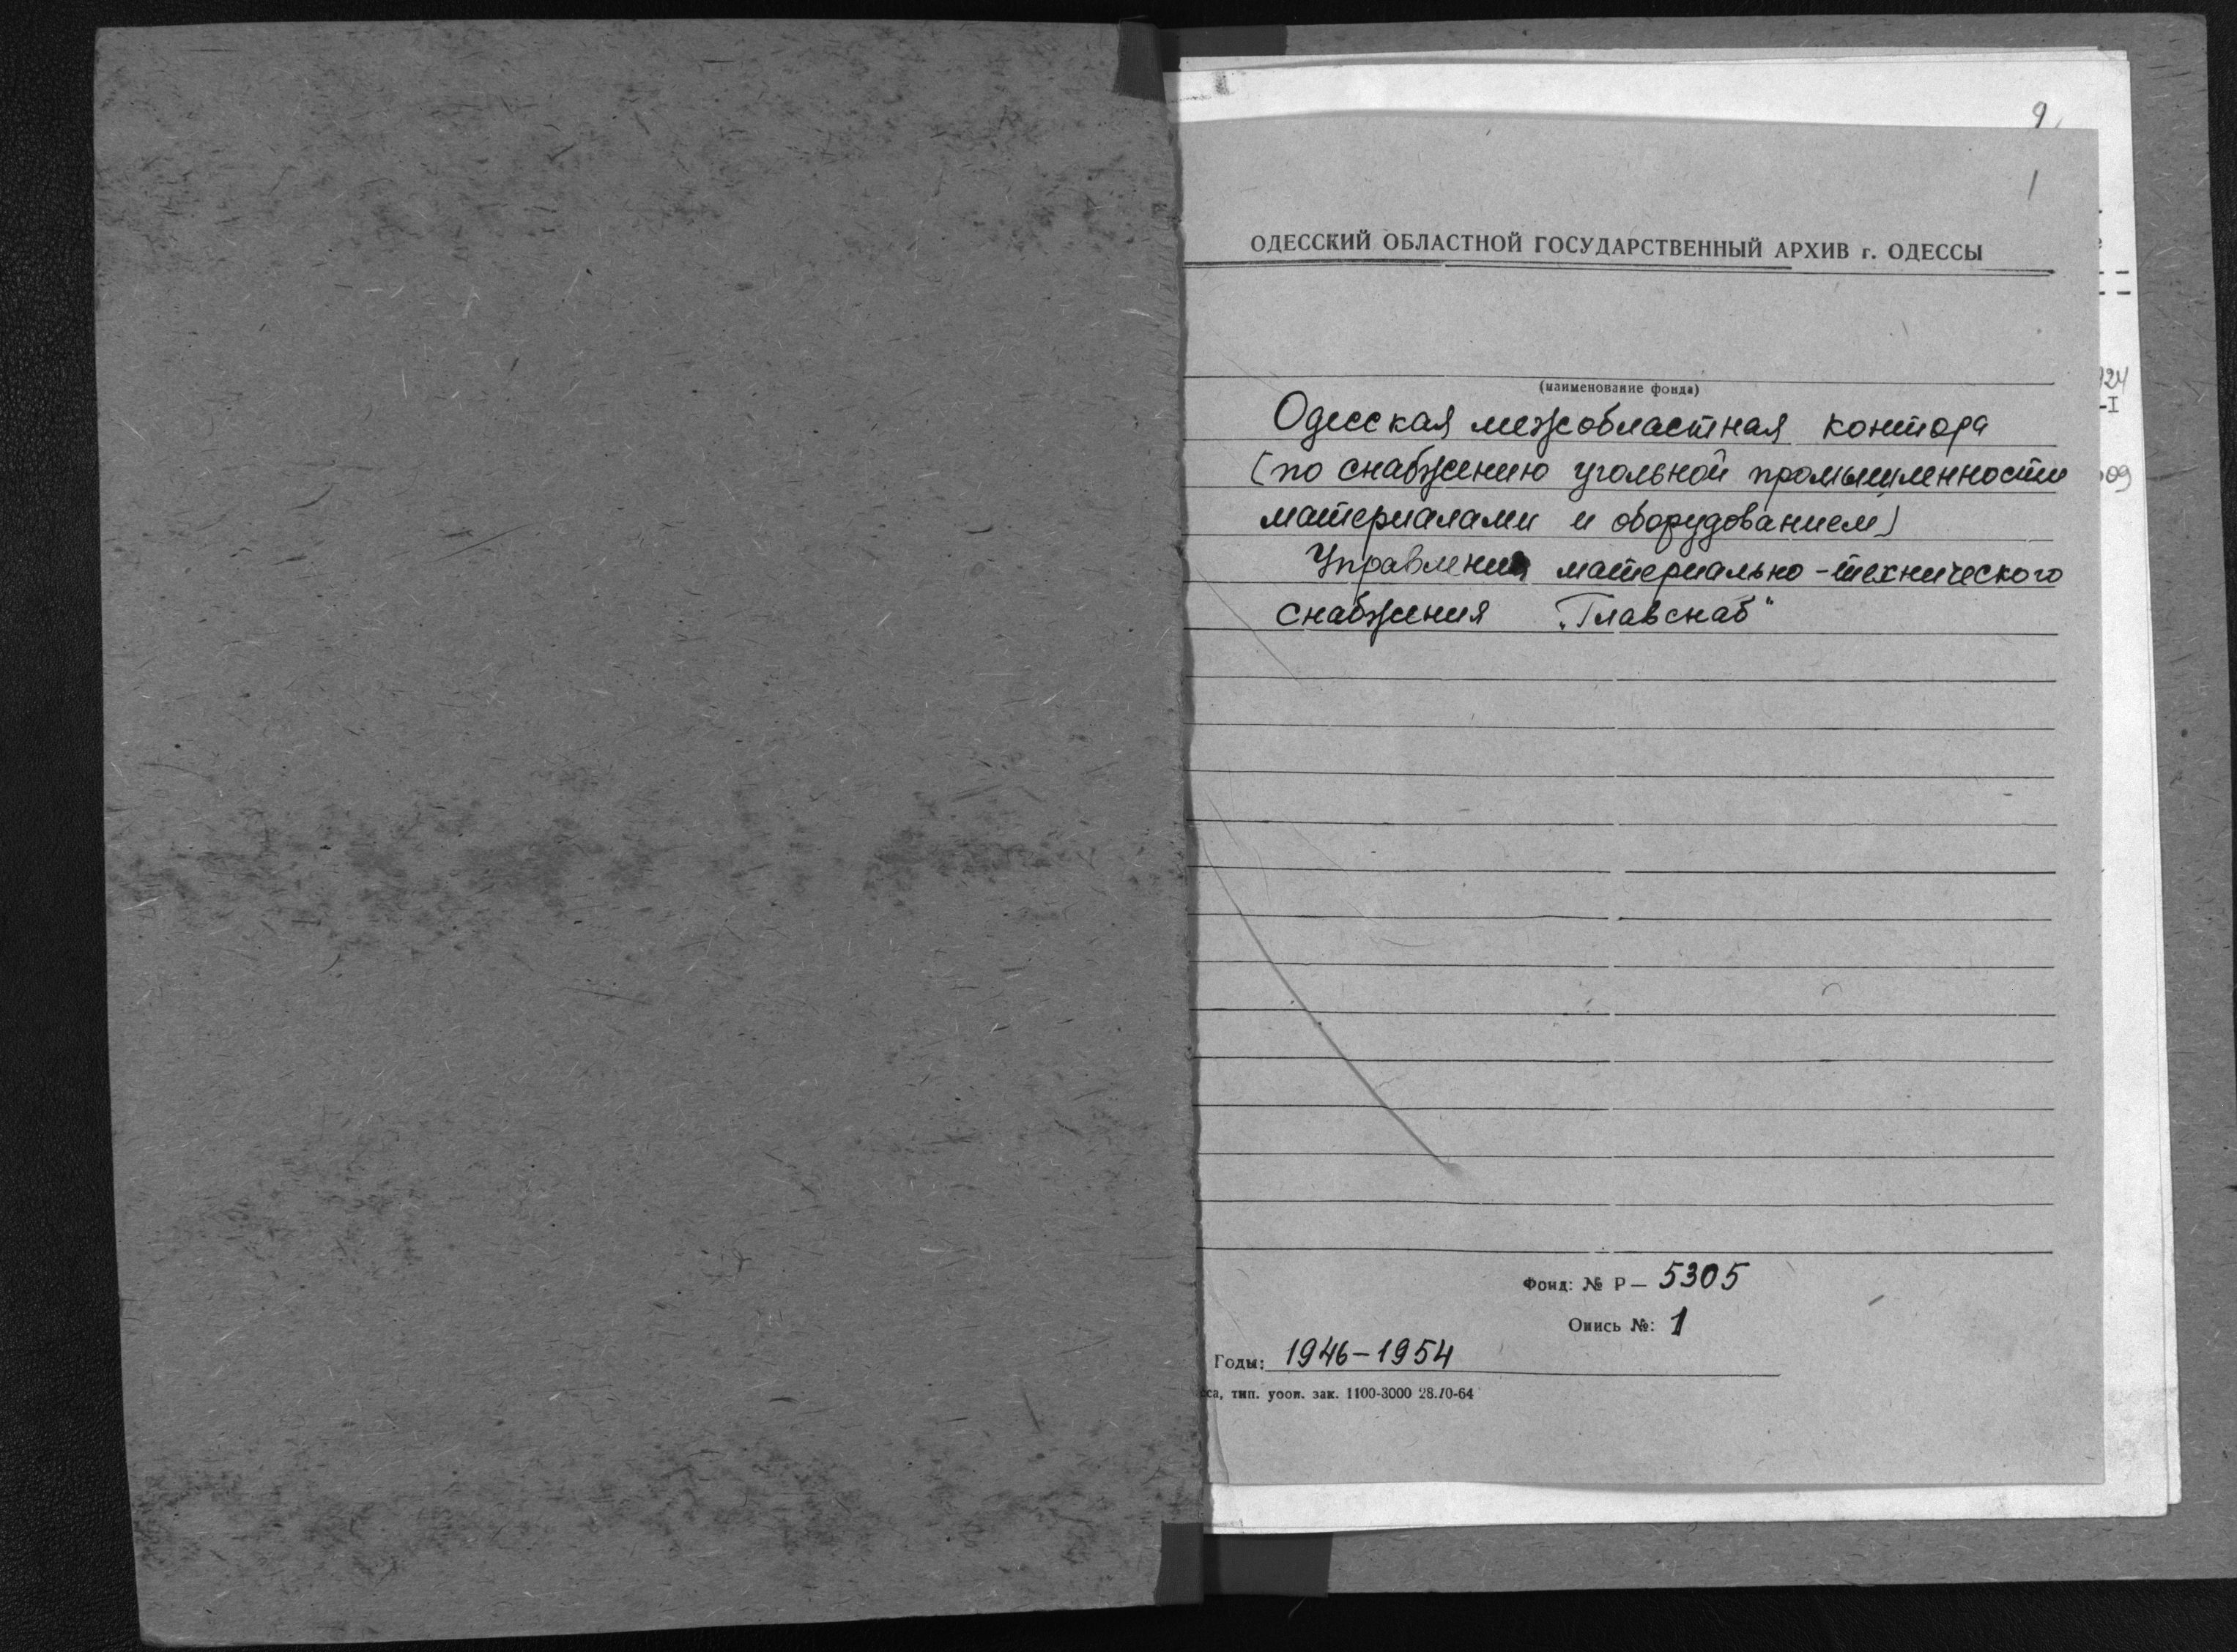 9
1
ОДЕССКИЙ ОБЛАСТНОЙ ГОСУДАРСТВЕННЫЙ АРХИВ г. ОДЕССЫ
(наименование фонда)
Одесская межобластная контора
(по снабжению угольной промышленности
материалами и оборудованием)
Управления материально-технического
снабжения „Главснаб"
Фонд: № Р— 5305
Опись №: 1
Годы: 1946-1954
тип. уооп. зак. 1100-3000 28.10-64